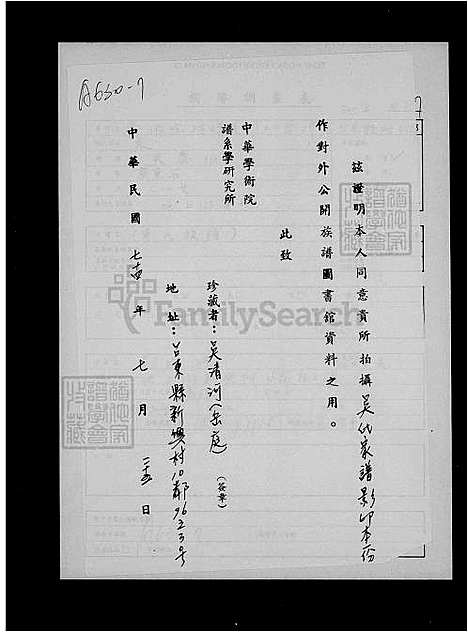 A630-7
茲證明本人同意貴所拍攝吳氏家譜影印本一份
作對外公開族譜圖書館資料之用。
此致
中華學術院
譜系學研究所
珍藏者：吳清河（簽章）
地址：台東縣新興村10鄰96之3号
中華民國七十四年七月二十五日
FamilySearch